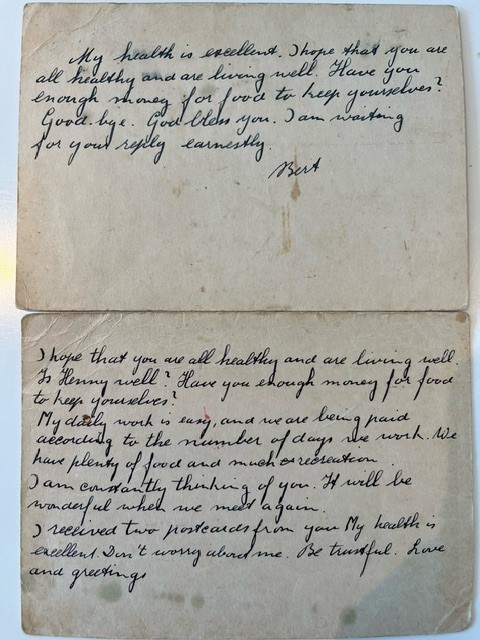 My health is excellent. I hope that you are
all healthy and are living well. Have you
enough money for food to keep yourselves?
Good-bye. God bless you. I am waiting
for your reply earnestly.
Bert
I hope that you are all healthy and are living well.
Is Henny well? Have you enough money for food
to keep yourselves?
My daily work is easy, and we are being paid
according to the number of days we work. We
have plenty of food and much recreation
I am constantly thinking of you. It will be
wonderful when we meet again.
I received two postcards from you My health is
excellent. Don't worry about me. Be trustful. Love
and greetings